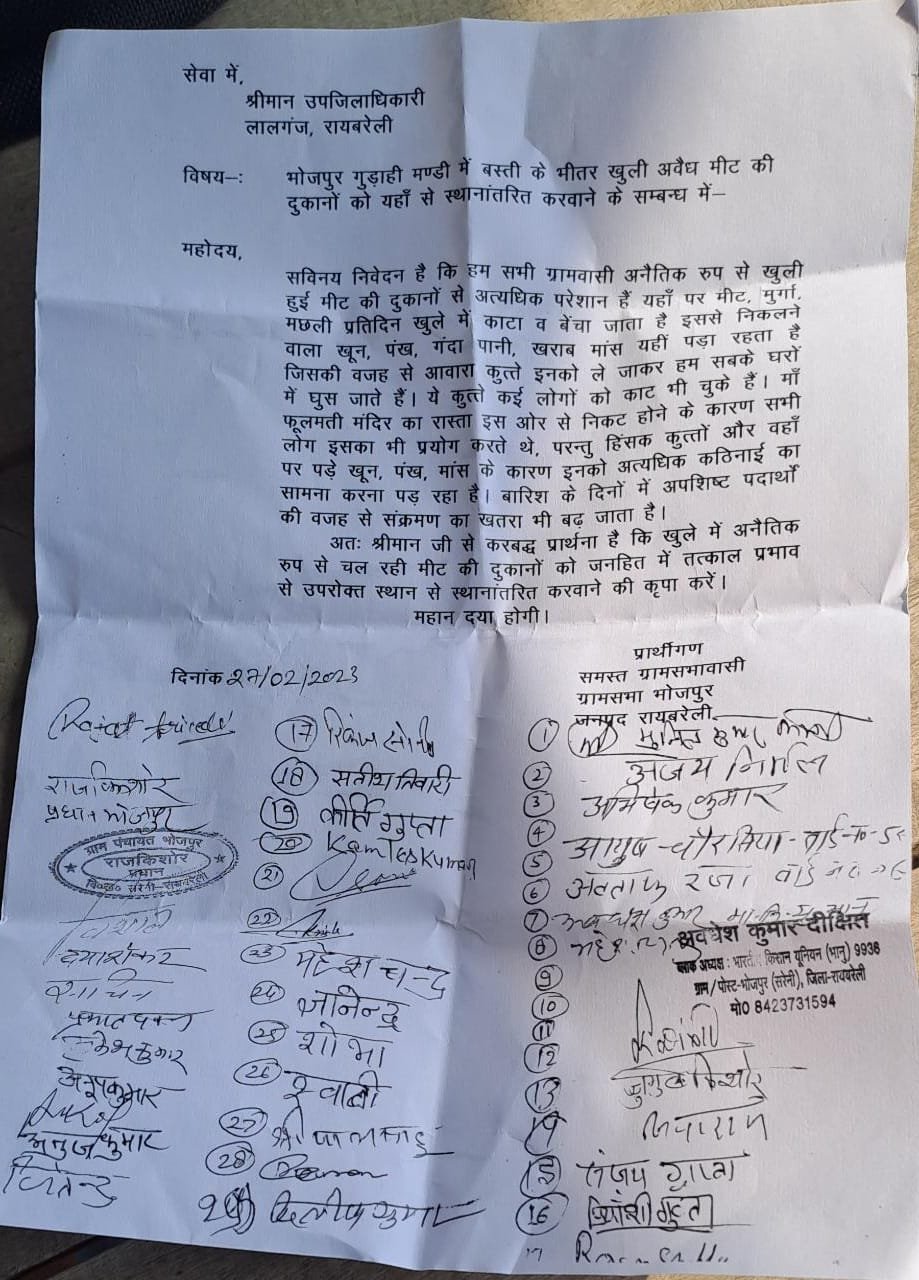 सेवा में,
श्रीमान उपजिलाधिकारी
लालगंज, रायबरेली
विषय–: भोजपुर गुड़ाही मण्डी में बस्ती के भीतर खुली अवैध मीट की
दुकानों को यहाँ से स्थानांतरित करवाने के सम्बन्ध में–
महोदय,
सविनय निवेदन है कि हम सभी ग्रामवासी अनैतिक रुप से खुली
हुई मीट की दुकानों से अत्यधिक परेशान हैं यहाँ पर मीट, मुर्गा,
मछली प्रतिदिन खुले में काटा व बेंचा जाता है इससे निकलने
वाला खून, पंख, गंदा पानी, खराब मांस यहीं पड़ा रहता है
जिसकी वजह से आवारा कुत्ते इनको ले जाकर हम सबके घरों
में घुस जाते हैं। ये कुत्ते कई लोगों को काट भी चुके हैं। माँ
फूलमती मंदिर का रास्ता इस ओर से निकट होने के कारण सभी
लोग इसका भी प्रयोग करते थे, परन्तु हिंसक कुत्तों और वहाँ
पर पड़े खून, पंख, मांस के कारण इनको अत्यधिक कठिनाई का
सामना करना पड़ रहा है। बारिश के दिनों में अपशिष्ट पदार्थो
की वजह से संक्रमण का खतरा भी बढ़ जाता है।
अतः श्रीमान जी से करबद्ध प्रार्थना है कि खुले में अनैतिक
रुप से चल रही मीट की दुकानों को जनहित में तत्काल प्रभाव
से उपरोक्त स्थान से स्थानांतरित करवाने की कृपा करें।
महान दया होगी।
दिनांक 27/02/2023
प्रार्थीगण
समस्त ग्रामसभावासी
ग्रामसभा भोजपुर
जनपद रायबरेली
राजकिशोर
प्रधान भोजपुर
ग्राम पंचायत भोजपुर
राजकिशोर
प्रधान
वि०ख० सरेनी-रायबरेली
दयाशंकर
अनूप कुमार
अनुज कुमार
जितेन्द्र
17
18 सतीश तिवारी
19 कीर्ति गुप्ता
20 Kamlesh Kumar
21
22
23 महेश चन्द्र
24 ज्ञानेन्द्र
25 शोभा
26
27
28
29 दिलीप कुमार
1
2 अजय निर्मल
3 अभिषेक कुमार
4 आयुष चौरसिया
5
6
7
8
अवधेश कुमार दीक्षित
ब्लाक अध्यक्ष: भारतीय किसान यूनियन (भानु) 9936
ग्राम/पोस्ट-भोजपुर (सरेनी), जिला-रायबरेली
मो0 8423731594
9
10
11
12
13 जुगुल किशोर
14
15 संजय गुप्ता
16